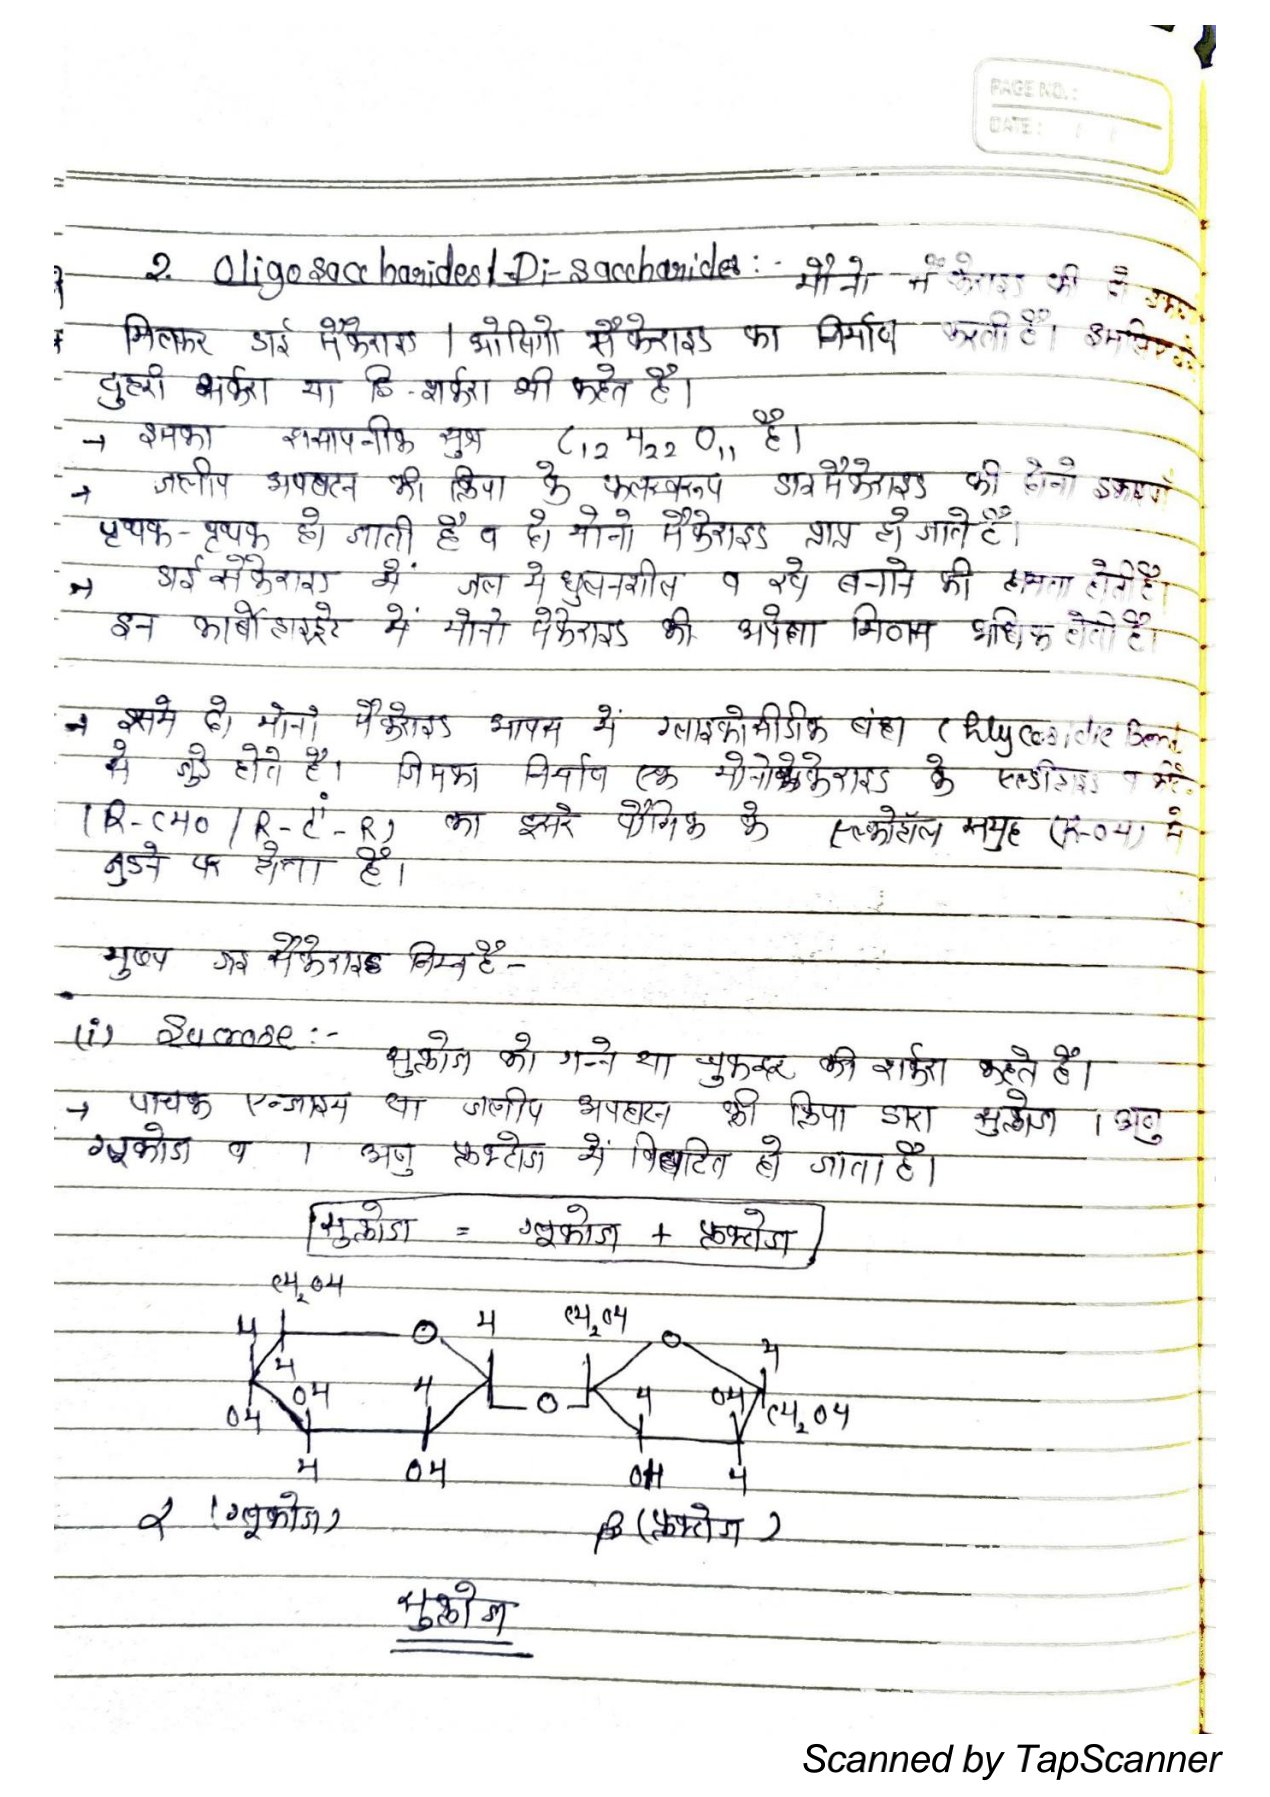 PAGE NO. :
DATE : / /
2. Oligosaccharides / Di-saccharides :- मोनो सैकेराइड की दो इकाई
मिलकर डाई सैकेराइड / ओलिगो सैकेराइड का निर्माण करती है। इसलिए इसे
दुहरी शर्करा या द्वि-शर्करा भी कहते है।
→ इनका रासायनीक सुत्र C12 H22 O11 है।
→ जलीय अपघटन की क्रिया के फलस्वरूप डाइसैकेराइड की दोनो इकाइयाँ
पृथक-पृथक हो जाती है व दो मोनो सैकेराइड प्राप्त हो जाते है।
→ डाई सैकेराइड में जल मे घुलनशील व रवे बनाने की क्षमता होती है।
इन कार्बोहाइड्रेट में मोनो सैकेराइड की अपेक्षा मिठास अधिक होती है।
→ इसमे दो मोनो सैकेराइड आपस में ग्लाइकोसीडीक बंध (Glycosidic Bond
से जुडे होते है। जिसका निर्माण एक मोनोसैकेराइड के एल्डीहाइड व
(R-CHO / R-C-R) का दुसरे यौगिक के एल्कोहॉल समुह (R-OH) से
जुडने पर होता है।
मुख्य डाइ सैकेराइड निम्न है -
(i) Sucrose :- सुक्रोज को गन्ने या चुकन्दर की शर्करा कहते है।
→ पाचक एन्जाइम या जलीय अपघटन की क्रिया द्वारा सुक्रोज 1 अणु
ग्लूकोज व 1 अणु फ्रक्टोज में विघटित हो जाता है।
सुक्रोज = ग्लूकोज + फ्रक्टोज
CH2OH
H O H CH2OH O H
H OH H H OH
OH O CH2OH
H OH OH H
α (ग्लूकोज) β (फ्रक्टोज)
सुक्रोज
Scanned by TapScanner